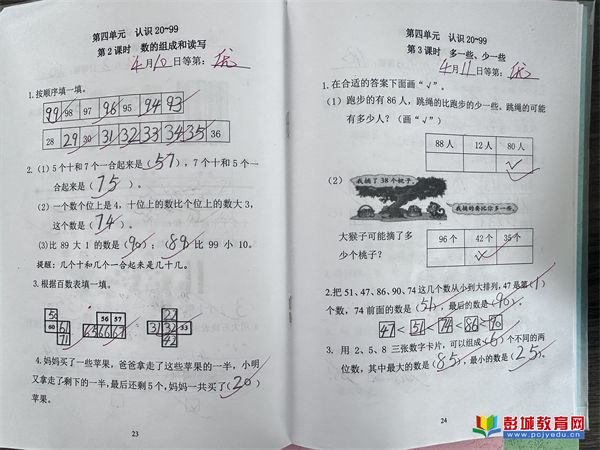 第四单元 认识20~99
第2课时 数的组成和读写
4月10日等第：优
1.按顺序填一填。
99 98 97 96 95 94 93
28 29 30 31 32 33 34 35 36
2.（1）5个十和7个一合起来是（57），7个十和5个一
合起来是（75）。
（2）一个数个位上是4，十位上的数比个位上的数大3，
这个数是（74）。
（3）比89大1的数是（90）；（89）比99小10。
提醒：几个十和几个一合起来是几十几。
3.根据百数表填一填。
50 56 57 22
60 61 65 66 67 31 32 33
71 42
4.妈妈买了一些苹果，爸爸拿走了这些苹果的一半，小明
又拿走了剩下的一半，最后还剩5个，妈妈一共买了（20）
苹果。
23
第四单元 认识20~99
第3课时 多一些、少一些
4月11日等第：优
1.在合适的答案下面画“√”。
（1）跑步的有86人，跳绳的比跑步的少一些。跳绳的可能
有多少人？（画“√”）
88人 12人 80人
√
（2）
我摘了38个桃子。
我摘的要比你多一些。
大猴子可能摘了多
少个桃子？
96个 42个 35个
√
2.把51、47、86、90、74这几个数从小到大排列，47是第（1）
个数，74前面的数是（51），最后的数是（90）。
47＜51＜74＜86＜90
3. 用2、5、8三张数字卡片，可以组成（6）个不同的两
位数，其中最大的数是（85），最小的数是（25）。
24
彭城教育网
www.pcjyedu.cn